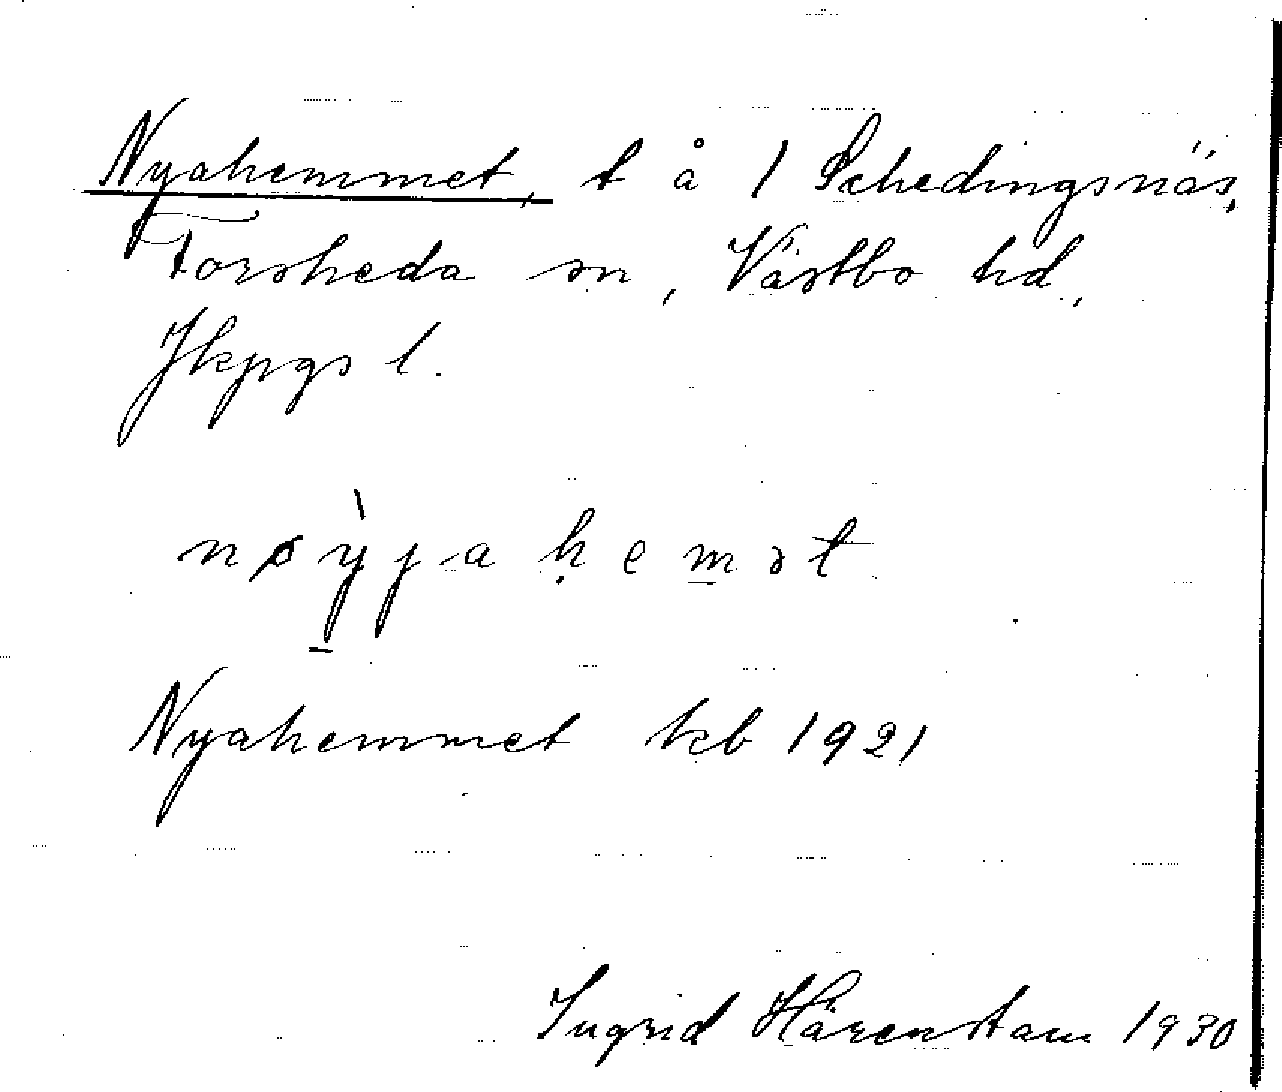 Nyahemmet, t å 1 Schedingsnäs,
Forsheda sn, Västbo hd,
Jkpgs l.
nøỳ̠ja ḥem̠ət
Nyahemmet kb 1921
Ingrid Härenstam 1930